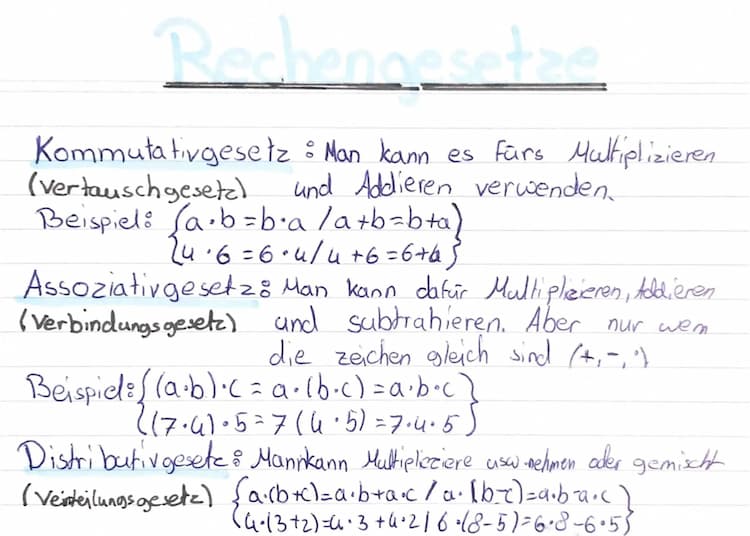 Rechengesetze
Kommutativgesetz : Man kann es fürs Multiplizieren
(Vertauschgesetz) und Addieren verwenden.
Beispiel: {a·b=b·a / a+b=b+a}
{4·6=6·4/4+6=6+4}
Assoziativgesetz: Man kann dafür Multiplizieren, Addieren
(Verbindungsgesetz) und subtrahieren. Aber nur wenn
die zeichen gleich sind (+,-,·)
Beispiel: {(a·b)·c = a·(b·c) = a·b·c}
{(7·4)·5=7(4·5)=7·4·5}
Distributivgesetz: Mann kann Multipliziere usw. nehmen oder gemischt
(Verteilungsgesetz) {a·(b+c)=a·b+a·c / a·(b-c)=a·b-a·c}
{4·(3+2)=4·3+4·2/6·(8-5)=6·8-6·5}